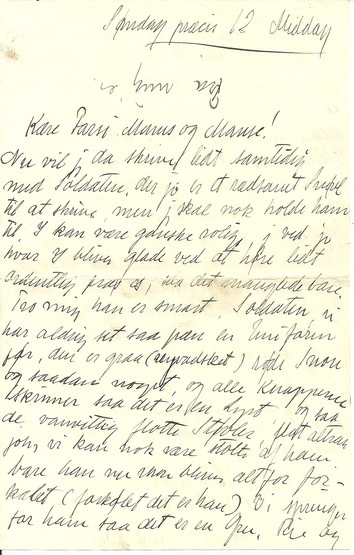 Søndag præcis 12 Middag
Kære Farsi, Mams og Manse!
Nu vil j da skrive lidt samtidig
med Soldaten, der jo er et rædsomt Snegl
til at skrive, men j skal nok holde ham
til. I kan være ganske rolig, j ved jo
hvor I bliver glade ved at høre lidt
ordentlig fra os, saa det manglede bare.
Tro mig han er smart, Soldaten, vi
har aldrig set saa pæn en Uniform
før, den er graa (nyvadsket) røde Snore
og saadan noget, og alle Knapperne
skinner saa det er en Lyst, og saa
de vanvittig flotte Støvler, flot altsaa
joh, vi kan nok være stolt, af ham
bare han nu ikke bliver altfor for-
kælet (forkølet det er han) Vi springer
for ham saa det er en Gru. Pige og